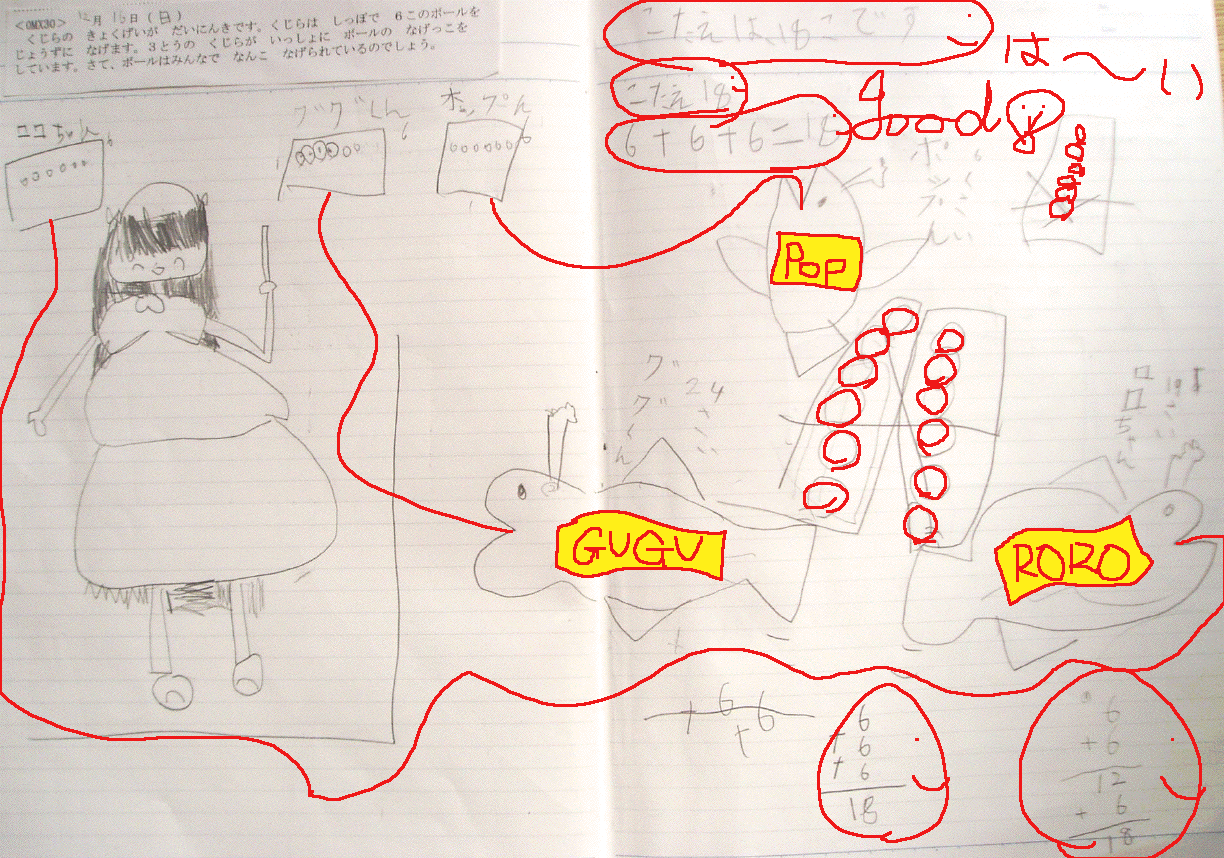 <OMX30> 12月 16日(日)
くじらの きょくげいが だいにんきです。くじらは しっぽで 6このボールを
じょうずに なげます。3とうの くじらが いっしょに ボールの なげっこを
しています。さて、ボールはみんなで なんこ なげられているのでしょう。
こたえは、18こです
は〜い
こたえ18
good
6+6+6=18
ココちゃん
6
ググくん
6
ポップくん
6
ポップくん
6さい
POP
ググくん
24さい
GUGU
ロロちゃん
19さい
RORO
+6
+6
6
+6
+6
18
6
+6
12
+6
18